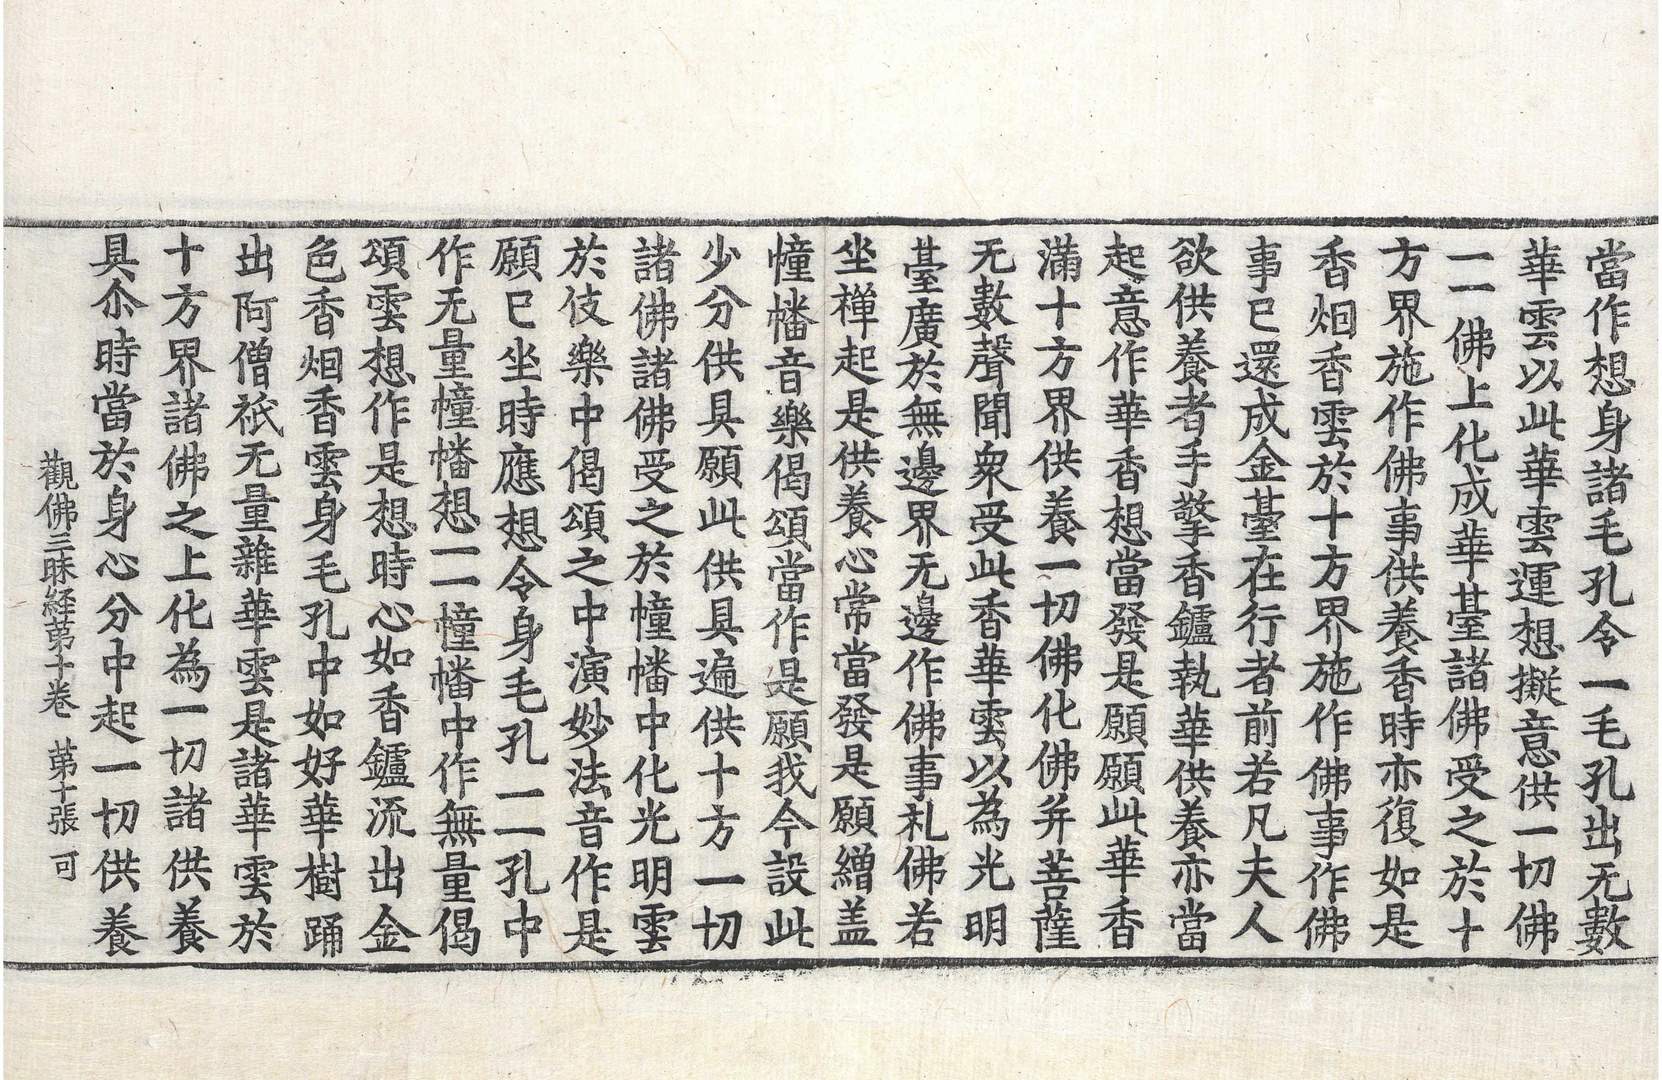 當作想身諸毛孔令一毛孔出无數
華雲以此華雲運想擬意供一切佛
一一佛上化成華臺諸佛受之於十
方界施作佛事供養香時亦復如是
香烟香雲於十方界施作佛事作佛
事已還成金臺在行者前若凡夫人
欲供養者手擎香鑪執華供養亦當
起意作華香想當發是願願此華香
滿十方界供養一切佛化佛并菩薩
无數聲聞衆受此香華雲以為光明
臺廣於無邊界无邊作佛事礼佛若
坐禪起是供養心常當發是願繒盖
幢幡音樂偈頌當作是願我今設此
少分供具願此供具遍供十方一切
諸佛諸佛受之於幢幡中化光明雲
於伎樂中偈頌之中演妙法音作是
願已坐時應想令身毛孔一一孔中
作无量幢幡想一一幢幡中作無量偈
頌雲想作是想時心如香鑪流出金
色香烟香雲身毛孔中如好華樹踊
出阿僧祇无量雜華雲是諸華雲於
十方界諸佛之上化為一切諸供養
具尒時當於身心分中起一切供養
觀佛三昧経苐十卷 苐十張 可